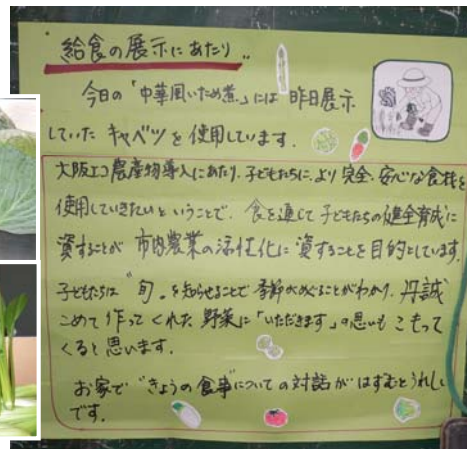 給食の展示にあたり
今日の「中華風いため煮」には昨日展示
していたキャベツを使用しています。
大阪エコ農産物導入にあたり、子どもたちに、より安全、安心な食材を
使用していきたいということで、食を通じて子どもたちの健全育成に
資することが市内農業の活性化に資することを目的としています。
子どもたちは"旬"を知らせることで季節がめぐることがわかり、丹誠
こめて作ってくれた野菜に「いただきます」の思いもこもって
くると思います。
お家で"きょうの食事"についての対話がはずむとうれしい
です。